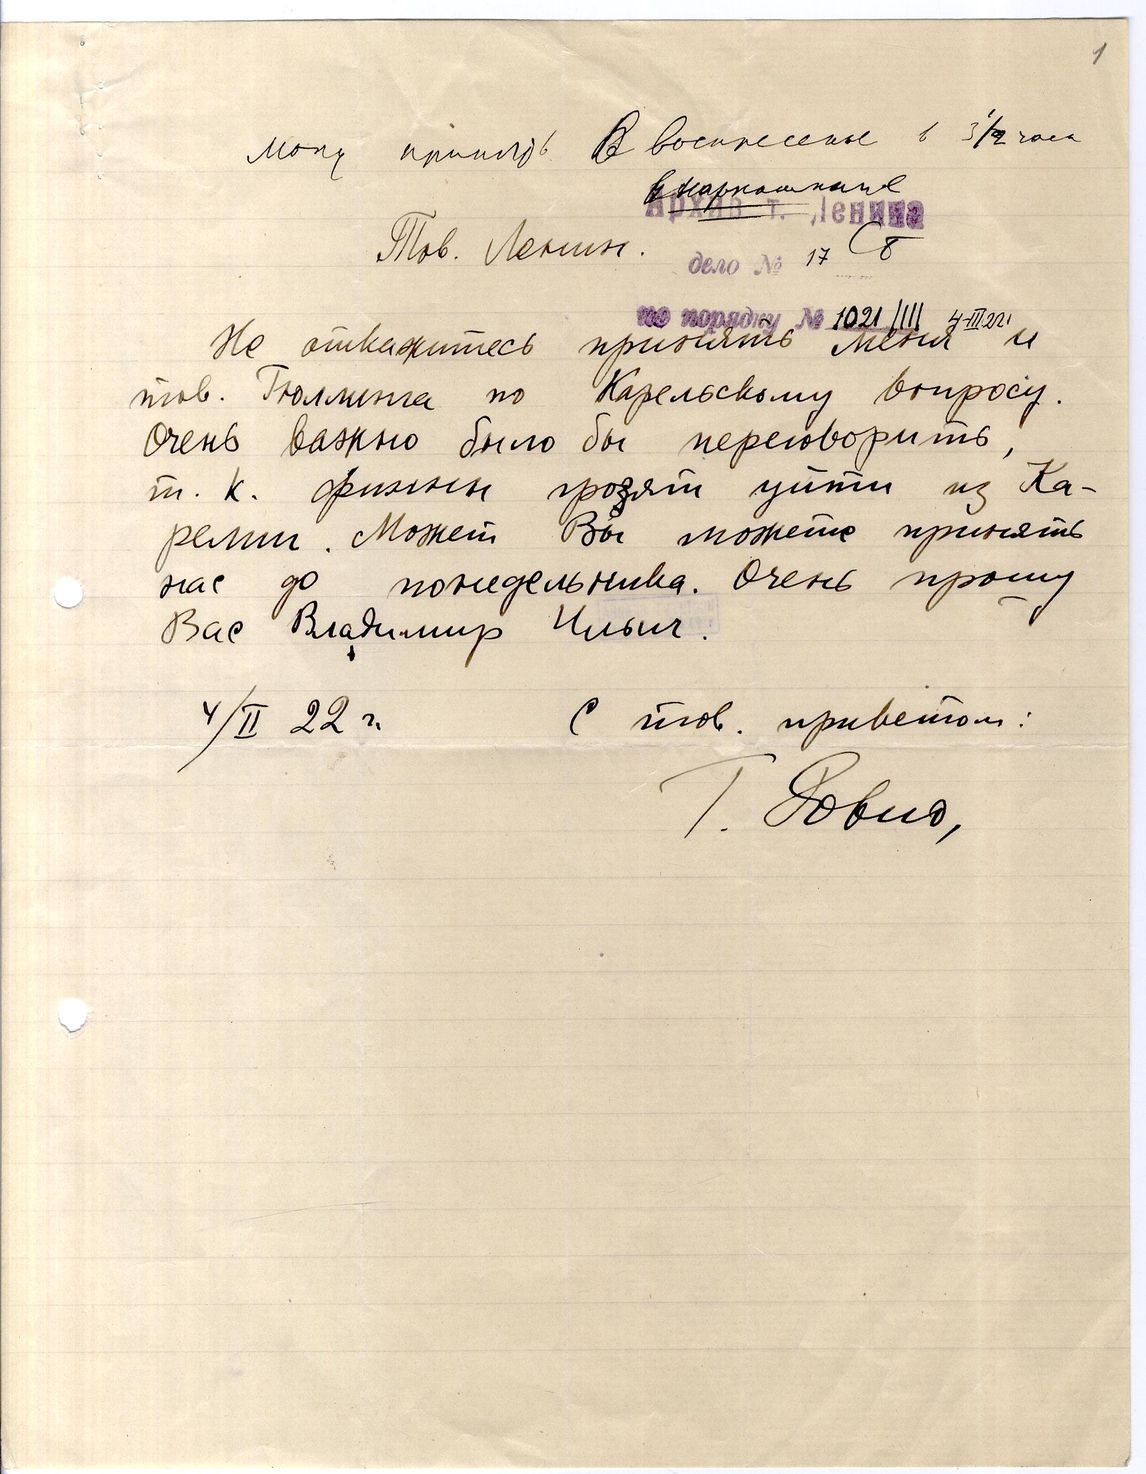 1
Могу принять В воскресенье в 3 1/2 часа
в наркоминделе
Архив т. Ленина
Тов. Ленин.
дело № 17
по порядку № 1021/III 4-III 22г
Не откажитесь принять меня и
тов. Гюллинга по Карельскому вопросу.
Очень важно было бы переговорить,
т. к. финны грозят уйти из Ка-
релии. Может Вы можете принять
нас до понедельника. Очень прошу
Вас Владимир Ильич.
4/II 22 г.
С тов. приветом:
Г. Ровио,